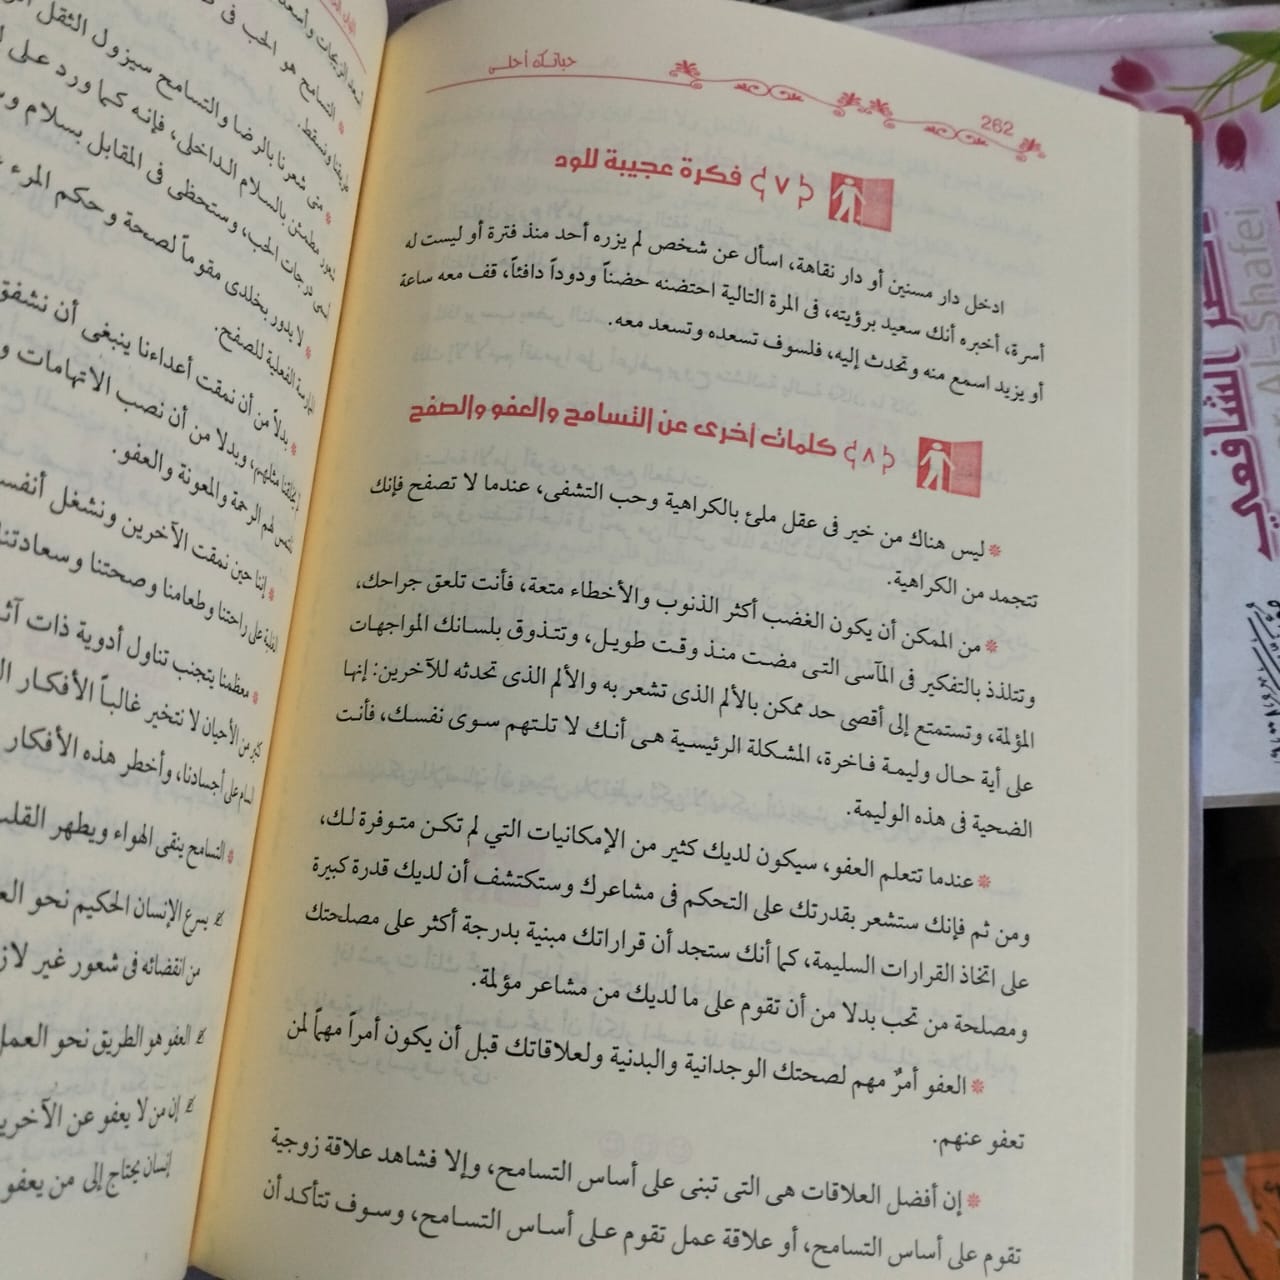 حياتك أحلى
262
﴿٧﴾ فكرة عجيبة للود
ادخل دار مسنين أو دار نقاهة، اسأل عن شخص لم يزره أحد منذ فترة أو ليست له
أسرة، أخبره أنك سعيد برؤيته، فى المرة التالية احتضنه حضناً ودوداً دافئاً، قف معه ساعة
أو يزيد اسمع منه وتحدث إليه، فلسوف تسعده وتسعد معه.
﴿٨﴾ كلمات أخرى عن التسامح والعفو والصفح
* ليس هناك من خير فى عقل ملئ بالكراهية وحب التشفى، عندما لا تصفح فإنك
تتجمد من الكراهية.
* من الممكن أن يكون الغضب أكثر الذنوب والأخطاء متعة، فأنت تلعق جراحك،
وتتلذذ بالتفكير فى المآسى التى مضت منذ وقت طويل، وتتذوق بلسانك المواجهات
المؤلمة، وتستمتع إلى أقصى حد ممكن بالألم الذى تشعر به والألم الذى تحدثه للآخرين: إنها
على أية حال وليمة فاخرة، المشكلة الرئيسية هى أنك لا تلتهم سوى نفسك، فأنت
الضحية فى هذه الوليمة.
* عندما تتعلم العفو، سيكون لديك كثير من الإمكانيات التي لم تكن متوفرة لك،
ومن ثم فإنك ستشعر بقدرتك على التحكم فى مشاعرك وستكتشف أن لديك قدرة كبيرة
على اتخاذ القرارات السليمة، كما أنك ستجد أن قراراتك مبنية بدرجة أكثر على مصلحتك
ومصلحة من تحب بدلا من أن تقوم على ما لديك من مشاعر مؤلمة.
* العفو أمرٌ مهم لصحتك الوجدانية والبدنية ولعلاقاتك قبل أن يكون أمراً مهماً لمن
تعفو عنهم.
* إن أفضل العلاقات هى التى تبنى على أساس التسامح، وإلا فشاهد علاقة زوجية
تقوم على أساس التسامح، أو علاقة عمل تقوم على أساس التسامح، وسوف تتأكد أن
* التسامح هو الحب فى
* متى شعرنا بالرضا والتسامح سيزول الثقل
شعور مطمئن بالسلام الداخلى، فإنه كما ورد على
درجات الحب، وستحظى فى المقابل بسلام
* لا يدور بخلدى مقوماً لصحة وحكم المرء
الممارسة الفعلية للصفح.
* بدلاً من أن نمقت أعداءنا ينبغى أن نشفق
مثلهم، وبدلا من أن نصب الاتهامات
لهم الرحمة والمعونة والعفو.
* إننا حين نمقت الآخرين ونشغل أنفسنا
على راحتنا وطعامنا وصحتنا وسعادتنا
* معظمنا يتجنب تناول أدوية ذات
من الأحيان لا نتخير غالباً الأفكار
على أجسادنا، وأخطر هذه الأفكار
* التسامح ينقى الهواء ويطهر القلب
يسرع الإنسان الحكيم نحو
من انقضائه فى شعور غير
العفو هو الطريق نحو العمل
إن من لا يعفو عن الآخرين
إنسان يحتاج إلى من يعفو
الشافعي
Al-Shafei